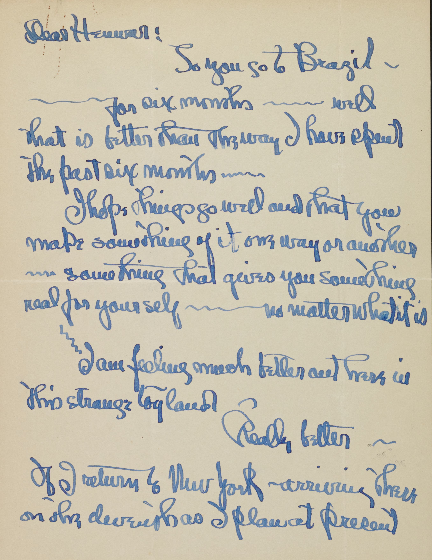 Dear Henwar!
So you go to Brazil ~
~~~ for six months ~~~ well
that is better than the way I have spent
the past six months ~~~
I hope things go well and that you
make something of it one way or another
~~ something that gives you something
real for yourself ~~~ no matter what it is
I am feeling much better out here in
this strange toyland
Really better ~
If I return to New York - arriving there
on the eleventh as I plan at present